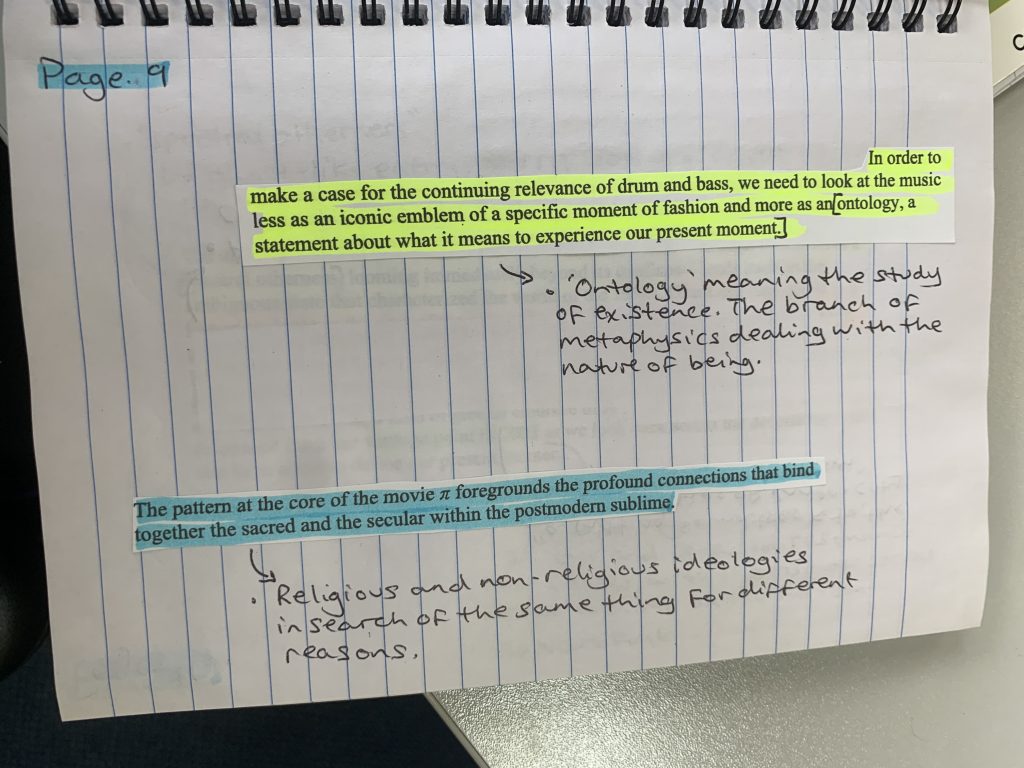 Page. 9
In order to
make a case for the continuing relevance of drum and bass, we need to look at the music
less as an iconic emblem of a specific moment of fashion and more as an [ontology, a
statement about what it means to experience our present moment.]
• 'Ontology' meaning the study
of existence. The branch of
metaphysics dealing with the
nature of being.
The pattern at the core of the movie π foregrounds the profound connections that bind
together the sacred and the secular within the postmodern sublime.
• Religious and non-religious ideologies
in search of the same thing for different
reasons.